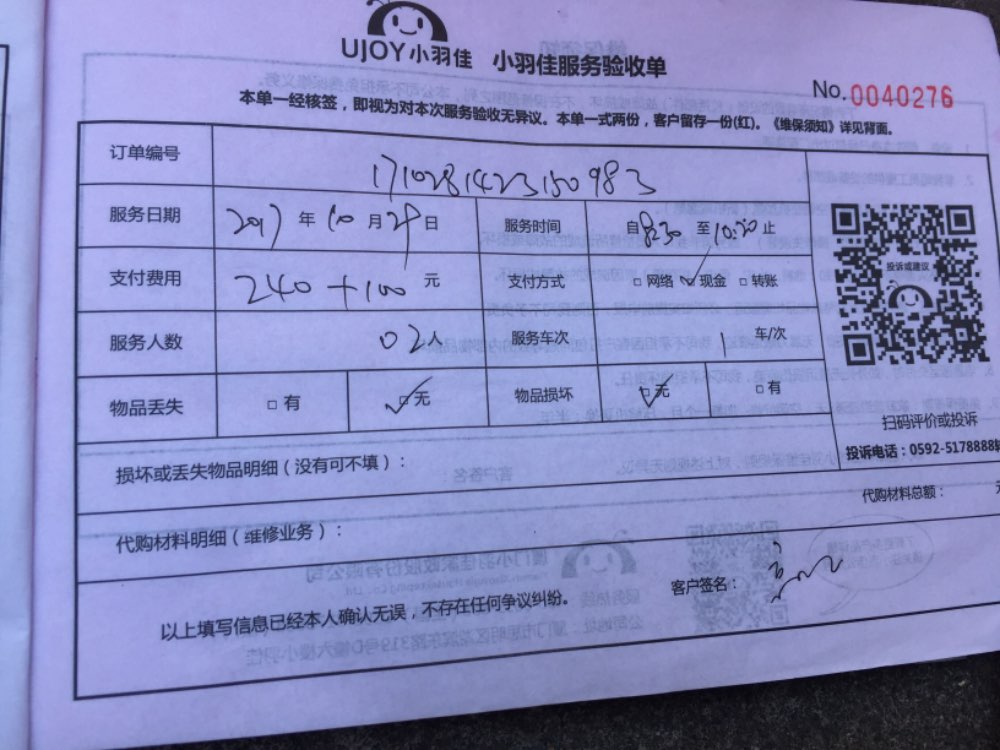 UJOY小羽佳 小羽佳服务验收单
No.0040276
本单一经核签，即视为对本次服务验收无异议。本单一式两份，客户留存一份(红)。《维保须知》详见背面。
订单编号 1710281423150983
服务日期 2017年10月29日 服务时间 自8:30至10:30止
支付费用 240+100元 支付方式 □网络 ☑现金 □转账
投诉或建议
服务人数 02人 服务车次 1车/次
物品丢失 □有 ☑无 物品损坏 ☑无 □有
扫码评价或投诉
投诉电话：0592-5178888
损坏或丢失物品明细（没有可不填）：
代购材料总额：
代购材料明细（维修业务）：
客户签名：
以上填写信息已经本人确认无误，不存在任何争议纠纷。